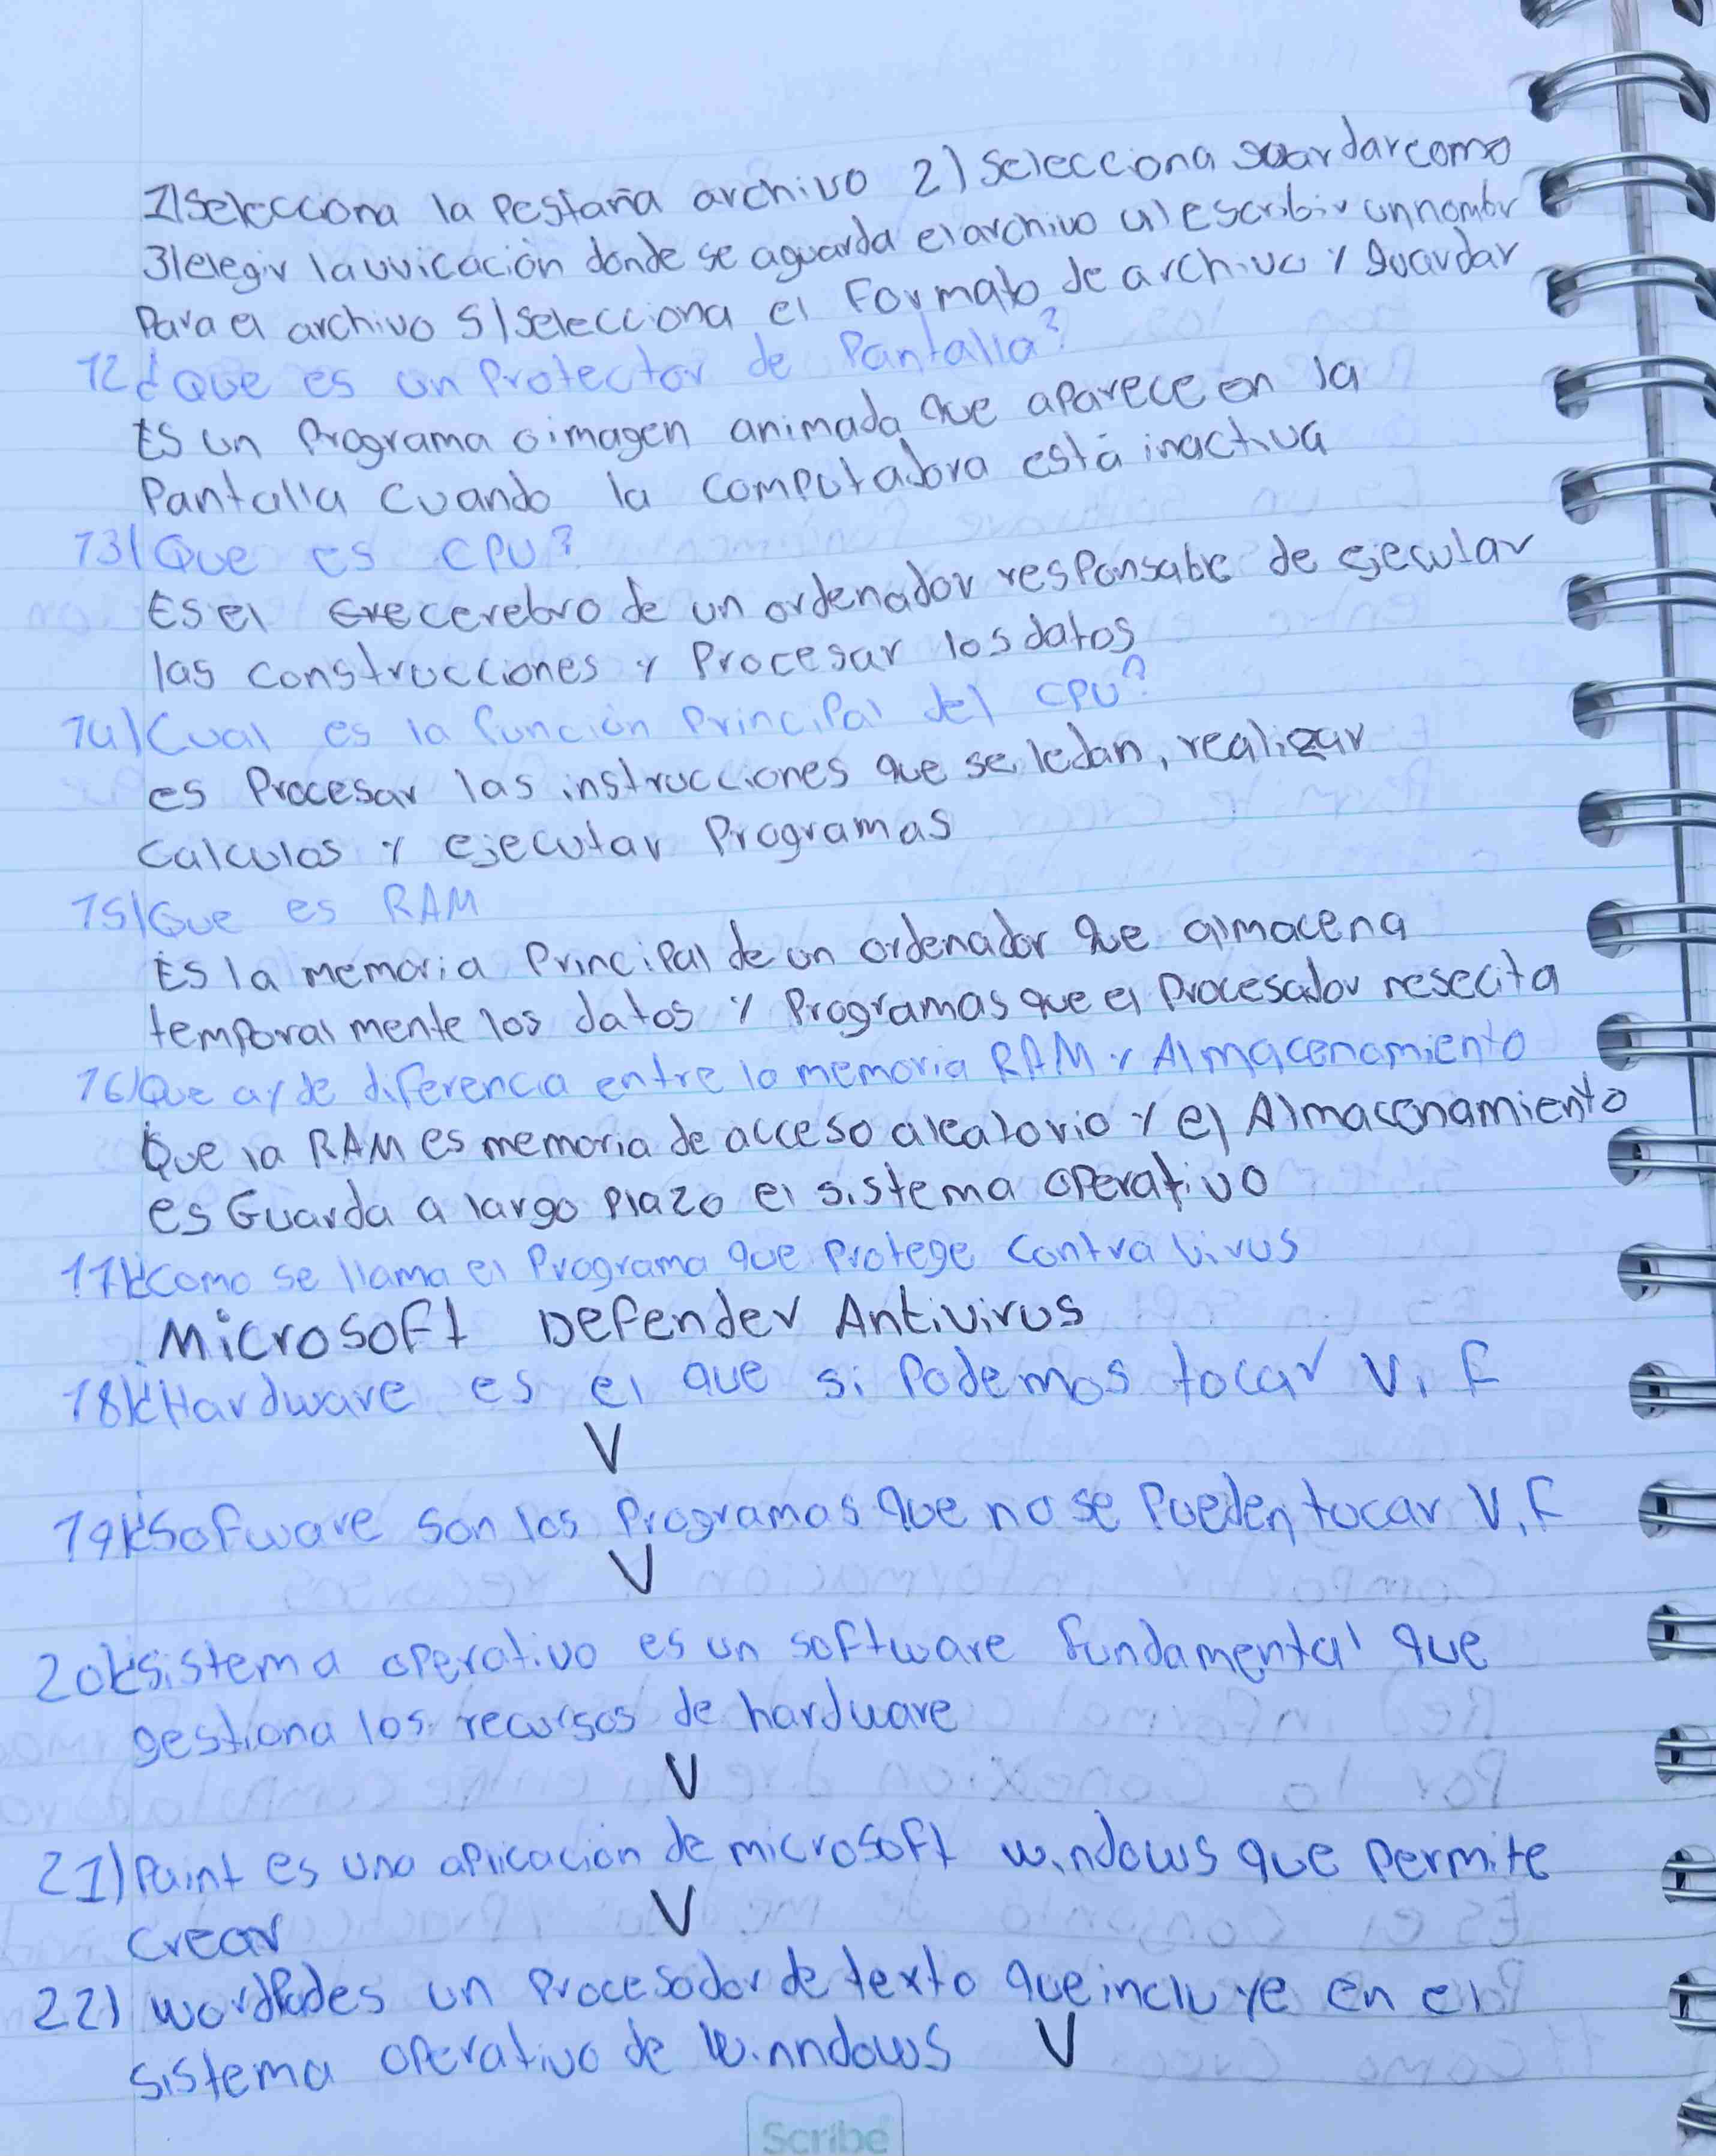 1) Selecciona la Pestaña archivo 2) Selecciona guardar como
3) elegir la uvicación donde se aguarda el archivo 4) escribir un nombr
Para el archivo 5) Selecciona el Formato de archivo y guardar
12 ¿Que es un Protector de Pantalla?
Es un Programa o imagen animada que aparece en la
Pantalla Cuando la computadora está inactiva
13) Que es CPU?
Es el cerebro de un ordenador responsable de ejecutar
las construcciones y Procesar los datos
14) Cual es la función Principal del CPU?
es Procesar las instrucciones que se le dan, realizar
Calculos y ejecutar Programas
15) Que es RAM
Es la memoria Principal de un ordenador que almacena
temporal mente los datos y Programas que el Procesador nesecita
16) Que ay de diferencia entre la memoria RAM y Almacenamiento
Que la RAM es memoria de acceso aleatorio y el Almacenamiento
es Guarda a largo Plazo el sistema operativo
17) ¿Como se llama el Programa que Protege Contra Virus
Microsoft Defender Antivirus
18) ¿Hardware es el que si Podemos tocar V, F
V
19) ¿Sofware son los Programas que no se Pueden tocar V, F
V
20) ¿Sistema operativo es un software fundamental que
gestiona los recursos de hardware
V
21) Paint es una aplicación de microsoft windows que Permite
V
crear
22) WordPades un Procesador de texto que incluye en el
sistema operativo de Winndows V
Scribe